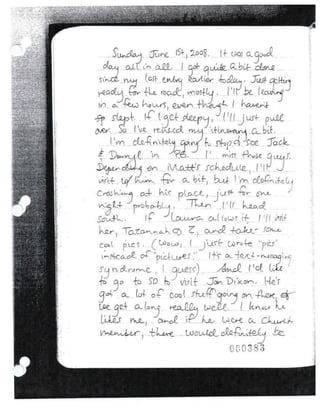 Sunday June 1st, 2008. It was a good
day all in all. I got quite a bit done
since my last entry earlier today. Just getting
ready for the road, mostly. I'll be leaving
in a few hours, even though I haven't
slept. If I get sleepy, I'll just pull
over. So I've revised my itinerary a bit.
I'm definitely going to stop & see Jack
& Darryl in I miss those guys.
Depending on Matt's schedule, I'll
visit w/ him for a bit, but I'm definitely
crashing at his place, just for one
night probably. Then I'll head
south. If Laura allows it I'll visit
her, & Z, and take some
cool pics. (Wow, I just wrote "pics"
instead of "pictures." It's a text-messaging
syndrome, I guess). And I'd like
to go to SD to visit Jon Dixon. He's
got a lot of cool stuff going on there, &
we get along really well. I know he
likes me, and if he were a Church
member, there would definitely be
000383